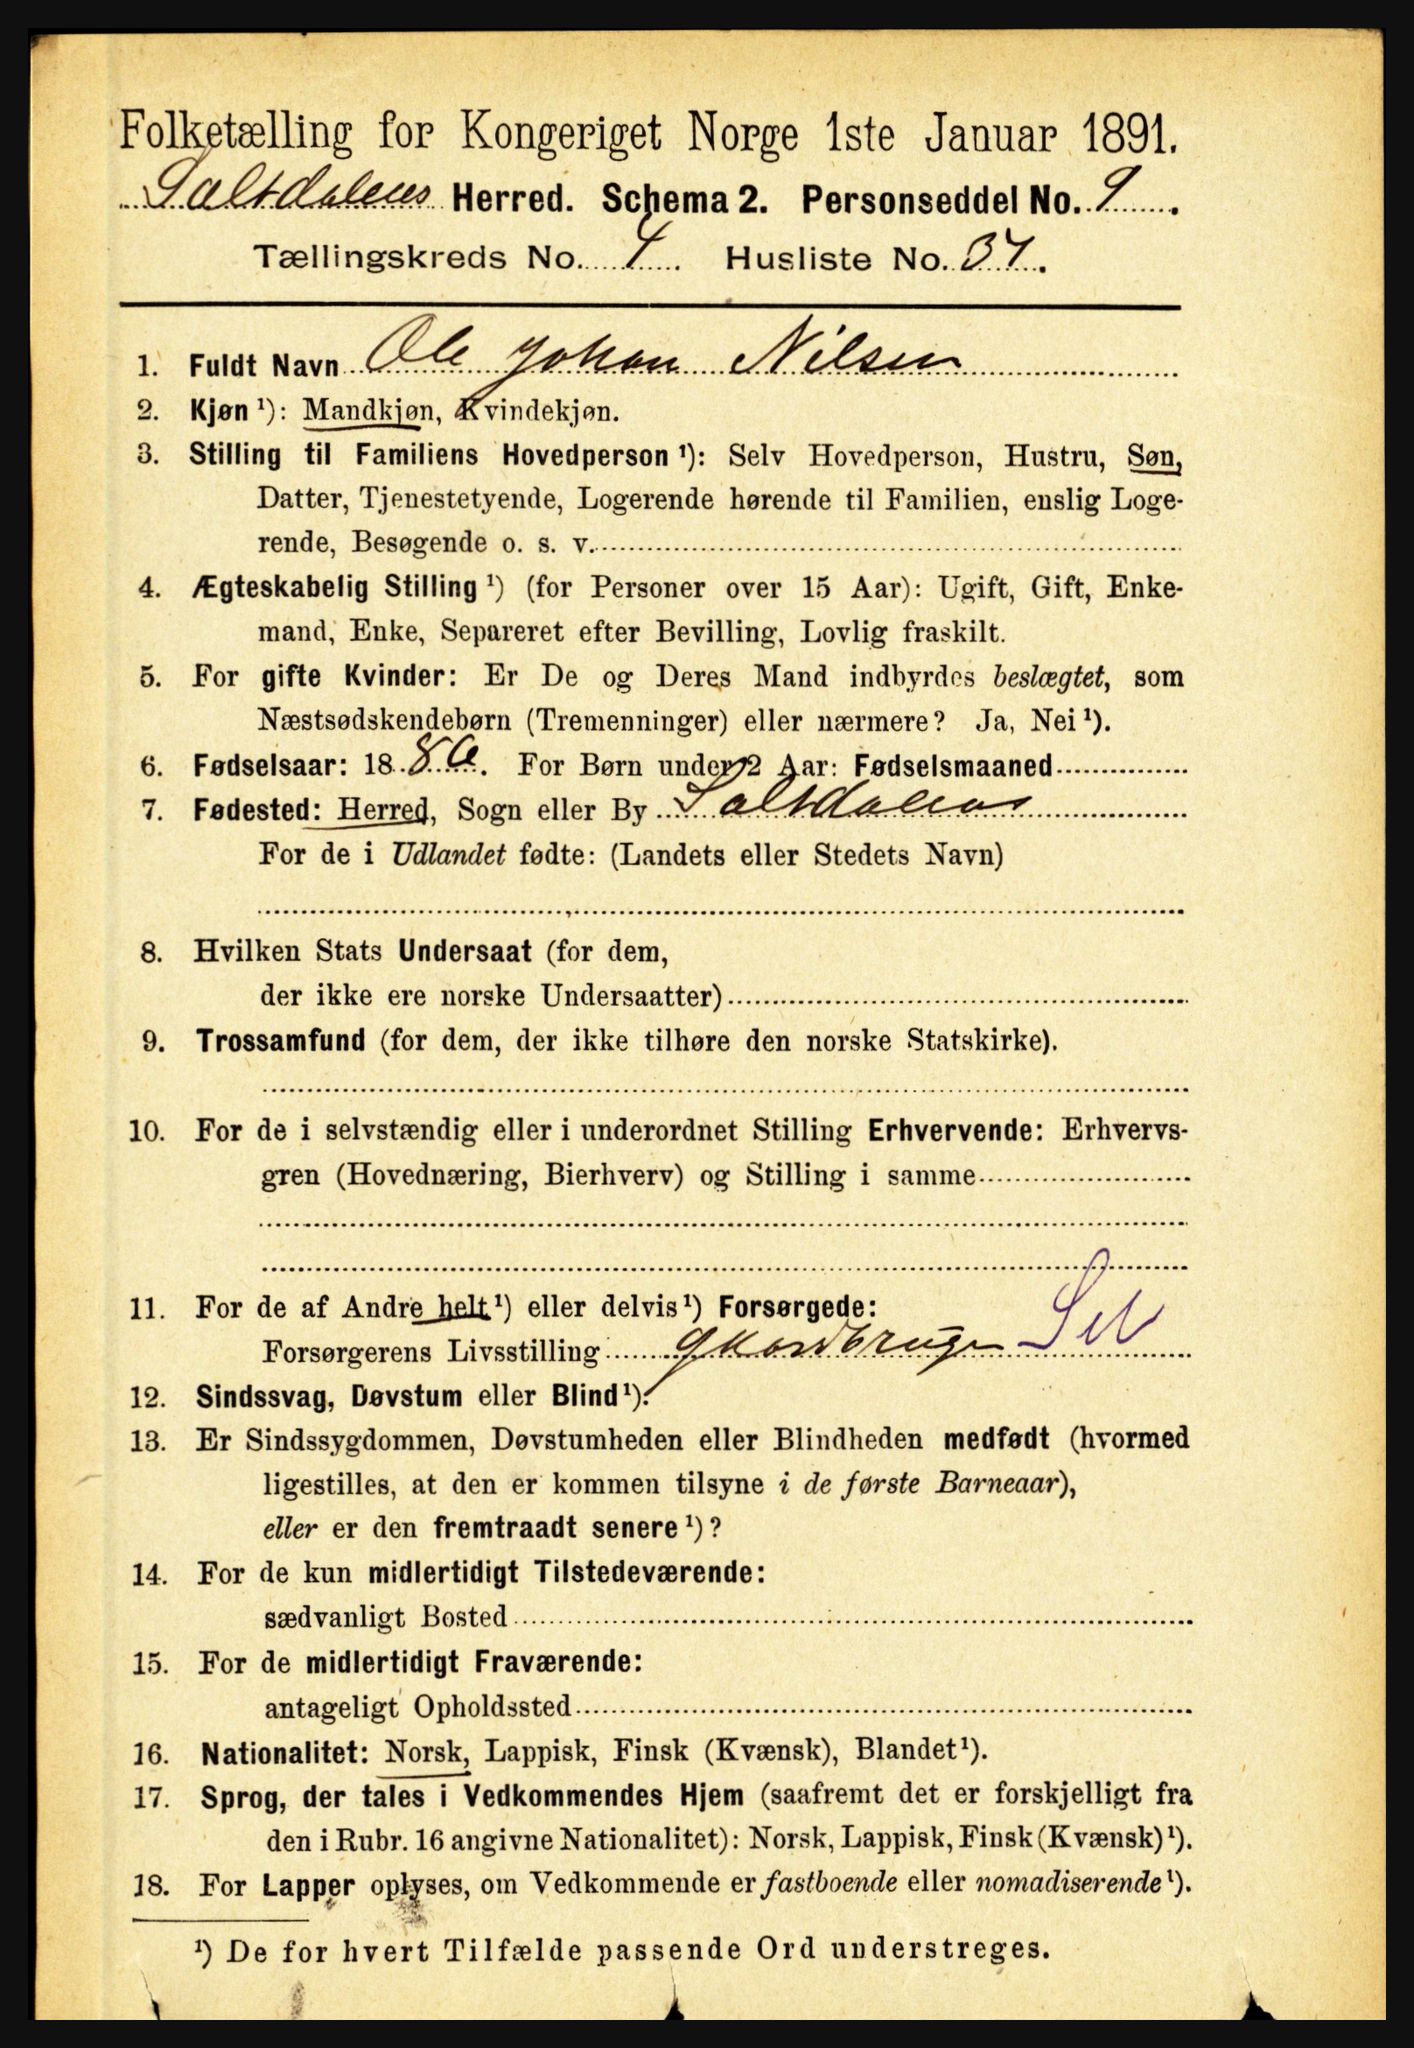 Folketælling for Kongeriget Norge 1ste Januar 1891.
Saltdalens Herred. Schema 2. Personseddel No. 9.
Tællingskreds No. 4. Husliste No. 37.
1. Fuldt Navn Ole Johan Nilsen
2. Kjøn ¹): Mandkjøn, Kvindekjøn.
3. Stilling til Familiens Hovedperson ¹): Selv Hovedperson, Hustru, Søn,
Datter, Tjenestetyende, Logerende hørende til Familien, enslig Loge-
rende, Besøgende o. s. v.
4. Ægteskabelig Stilling ¹) (for Personer over 15 Aar): Ugift, Gift, Enke-
mand, Enke, Separeret efter Bevilling, Lovlig fraskilt.
5. For gifte Kvinder: Er De og Deres Mand indbyrdes beslægtet, som
Næstsødskendebørn (Tremenninger) eller nærmere? Ja, Nei ¹).
6. Fødselsaar: 1886. For Børn under 2 Aar: Fødselsmaaned
7. Fødested: Herred, Sogn eller By Saltdalens
For de i Udlandet fødte: (Landets eller Stedets Navn)
8. Hvilken Stats Undersaat (for dem,
der ikke ere norske Undersaatter)
9. Trossamfund (for dem, der ikke tilhøre den norske Statskirke).
10. For de i selvstændig eller i underordnet Stilling Erhvervende: Erhvervs-
gren (Hovednæring, Bierhverv) og Stilling i samme
11. For de af Andre helt ¹) eller delvis ¹) Forsørgede:
Forsørgerens Livsstilling Gaardbruger Sel
12. Sindssvag, Døvstum eller Blind ¹).
13. Er Sindssygdommen, Døvstumheden eller Blindheden medfødt (hvormed
ligestilles, at den er kommen tilsyne i de første Barneaar),
eller er den fremtraadt senere ¹)?
14. For de kun midlertidigt Tilstedeværende:
sædvanligt Bosted
15. For de midlertidigt Fraværende:
antageligt Opholdssted
16. Nationalitet: Norsk, Lappisk, Finsk (Kvænsk), Blandet ¹).
17. Sprog, der tales i Vedkommendes Hjem (saafremt det er forskjelligt fra
den i Rubr. 16 angivne Nationalitet): Norsk, Lappisk, Finsk (Kvænsk) ¹).
18. For Lapper oplyses, om Vedkommende er fastboende eller nomadiserende ¹).
¹) De for hvert Tilfælde passende Ord understreges.